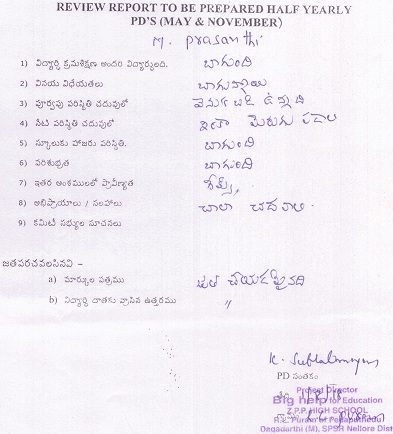 REVIEW REPORT TO BE PREPARED HALF YEARLY
PD'S (MAY & NOVEMBER)
M. Prasanthi
1) విద్యార్థి క్రమశిక్షణ అందరి విద్యార్థులది. బాగుంది
2) వినయ విధేయతలు బాగున్నాయి
3) పూర్వపు పరిస్థితి చదువులో వెనుకబడి ఉన్నది
4) నేటి పరిస్థితి చదువులో ఇంకా మెరుగు పడాలి
5) స్కూలుకు హాజరు పరిస్థితి. బాగుంది
6) పరిశుభ్రత బాగుంది
7) ఇతర అంశములలో ప్రావీణ్యత గేమ్స్
8) అభిప్రాయాలు / సలహాలు చాలా చదవాలి
9) కమిటీ సభ్యుల సూచనలు
జతపరచవలసినవి –
a) మార్కుల పత్రము జత చేయడమైనది
b) విద్యార్థి దాతకు వ్రాసిన ఉత్తరము "
PD సంతకం
Project Director
Big help for Education
Z.P.P. HIGH SCHOOL
Dagadarthi (M), SPSR Nellore Dist